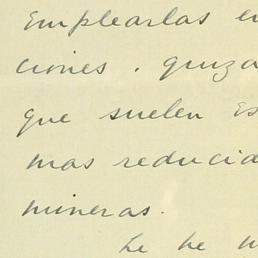 Emplearlas en
ciones. quiza
que suelen es
mas reducid
mineras.
he he